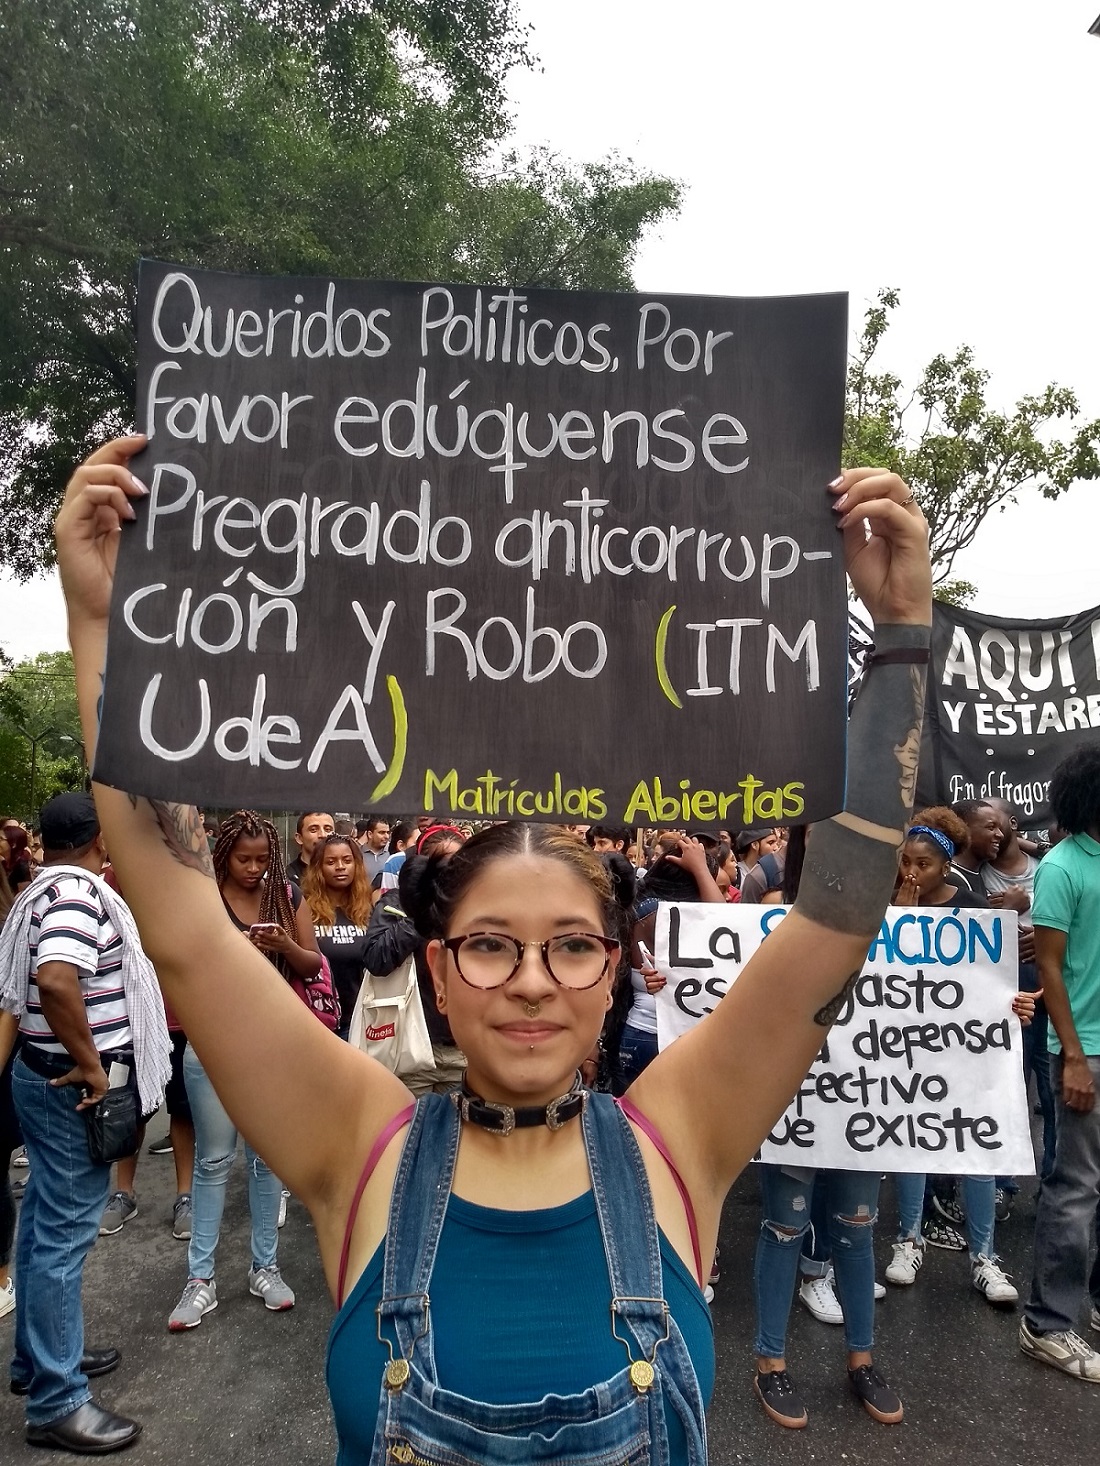 Queridos Políticos, Por
favor edúquense
Pregrado anticorrup-
ción y Robo (ITM
UdeA)
Matrículas Abiertas
AQUÍ
Y ESTARE
En el fragor
GIVENCHY
PARIS
La ACIÓN
es gasto
defensa
fectivo
ue existe